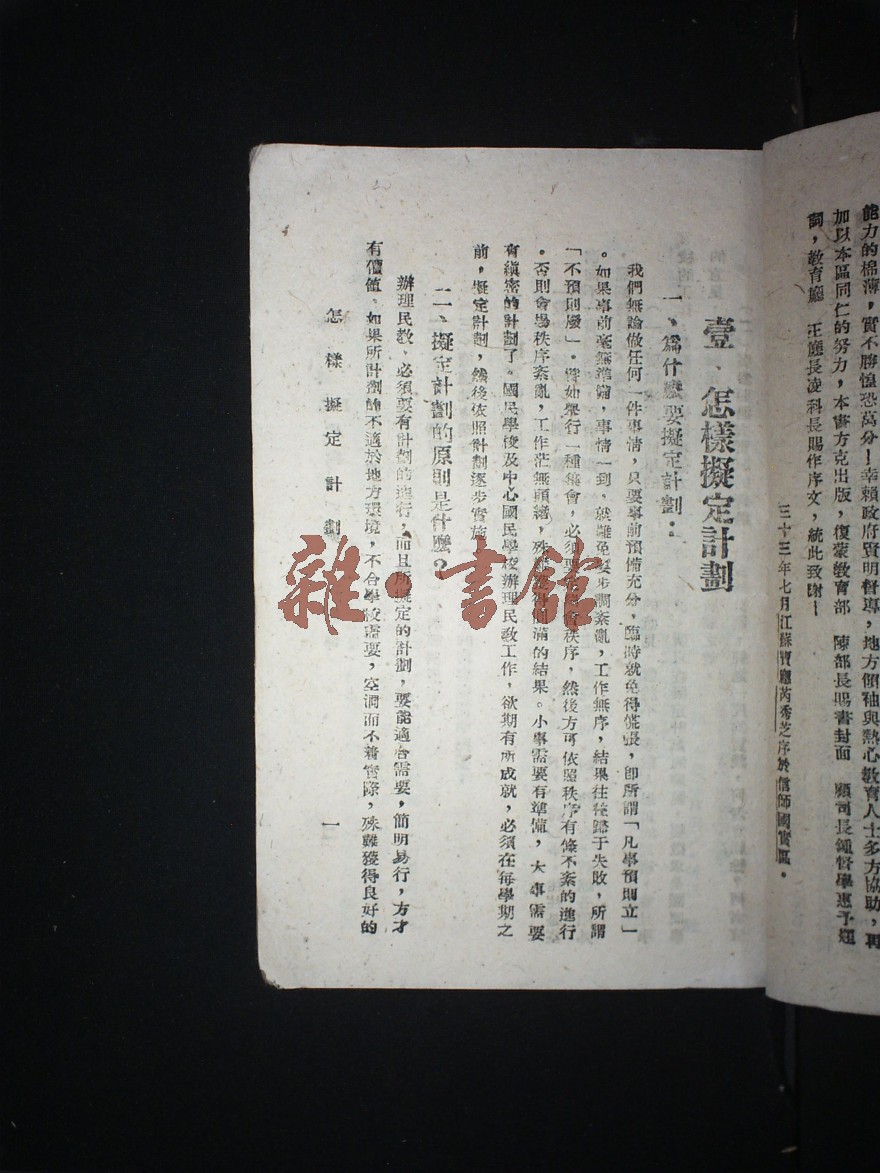 能力的棉薄，實不勝惶恐萬分！幸賴政府賢明督導，地方領袖與熱心教育人士多方協助，再
加以本區同仁的努力，本書方克出版，復蒙教育部　陳部長賜書封面　顧司長鍾督學惠予題
詞，教育廳　王廳長凌科長賜作序文，統此致謝！
三十三年七月江蘇寶應芮秀芝序於信師國實區。
壹、怎樣擬定計劃
一、爲什麼要擬定計劃：
我們無論做任何一件事情，只要事前預備充分，臨時就免得慌張，卽所謂「凡事預則立」
。如果事前毫無準備，事情一到，就難免要步調紊亂，工作無序，結果往往歸于失敗，所謂
「不預則廢」。譬如舉行一種集會，必須要秩序，然後方可依照秩序有條不紊的進行
。否則會場秩序紊亂，工作茫無頭緒，殊難獲得圓滿的結果。小事需要有準備，大事需要
有縝密的計劃了。國民學校及中心國民學校辦理民教工作，欲期有所成就，必須在每學期之
前，擬定計劃，然後依照計劃逐步實施
二、擬定計劃的原則是什麼？
辦理民教，必須要有計劃的進行，而且所擬定的計劃，要能適合需要，簡明易行，方才
有價值。如果所計劃的不適於地方環境，不合學校需要，空洞而不着實際，殊難獲得良好的
怎樣擬定計劃
一
雜·書館